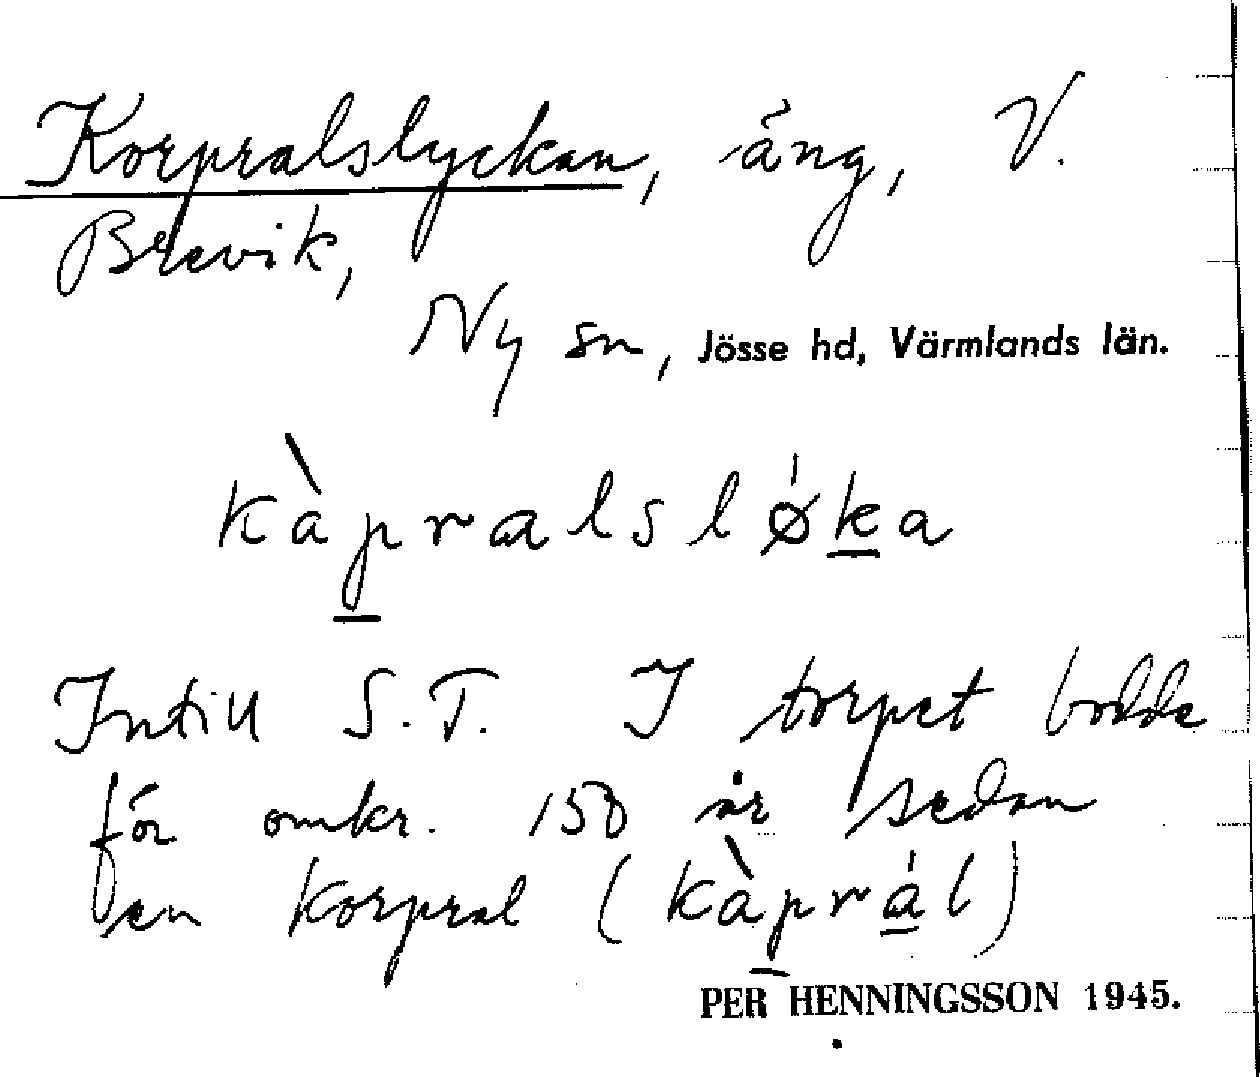 Korpralslyckan, äng, V.
Brevik,
Ny sn, Jösse hd, Värmlands län.
kàpralsløka
Intill S.T. I torpet bodde
för omkr. 150 år sedan
en korpral (kàprál)
PER HENNINGSSON 1945.